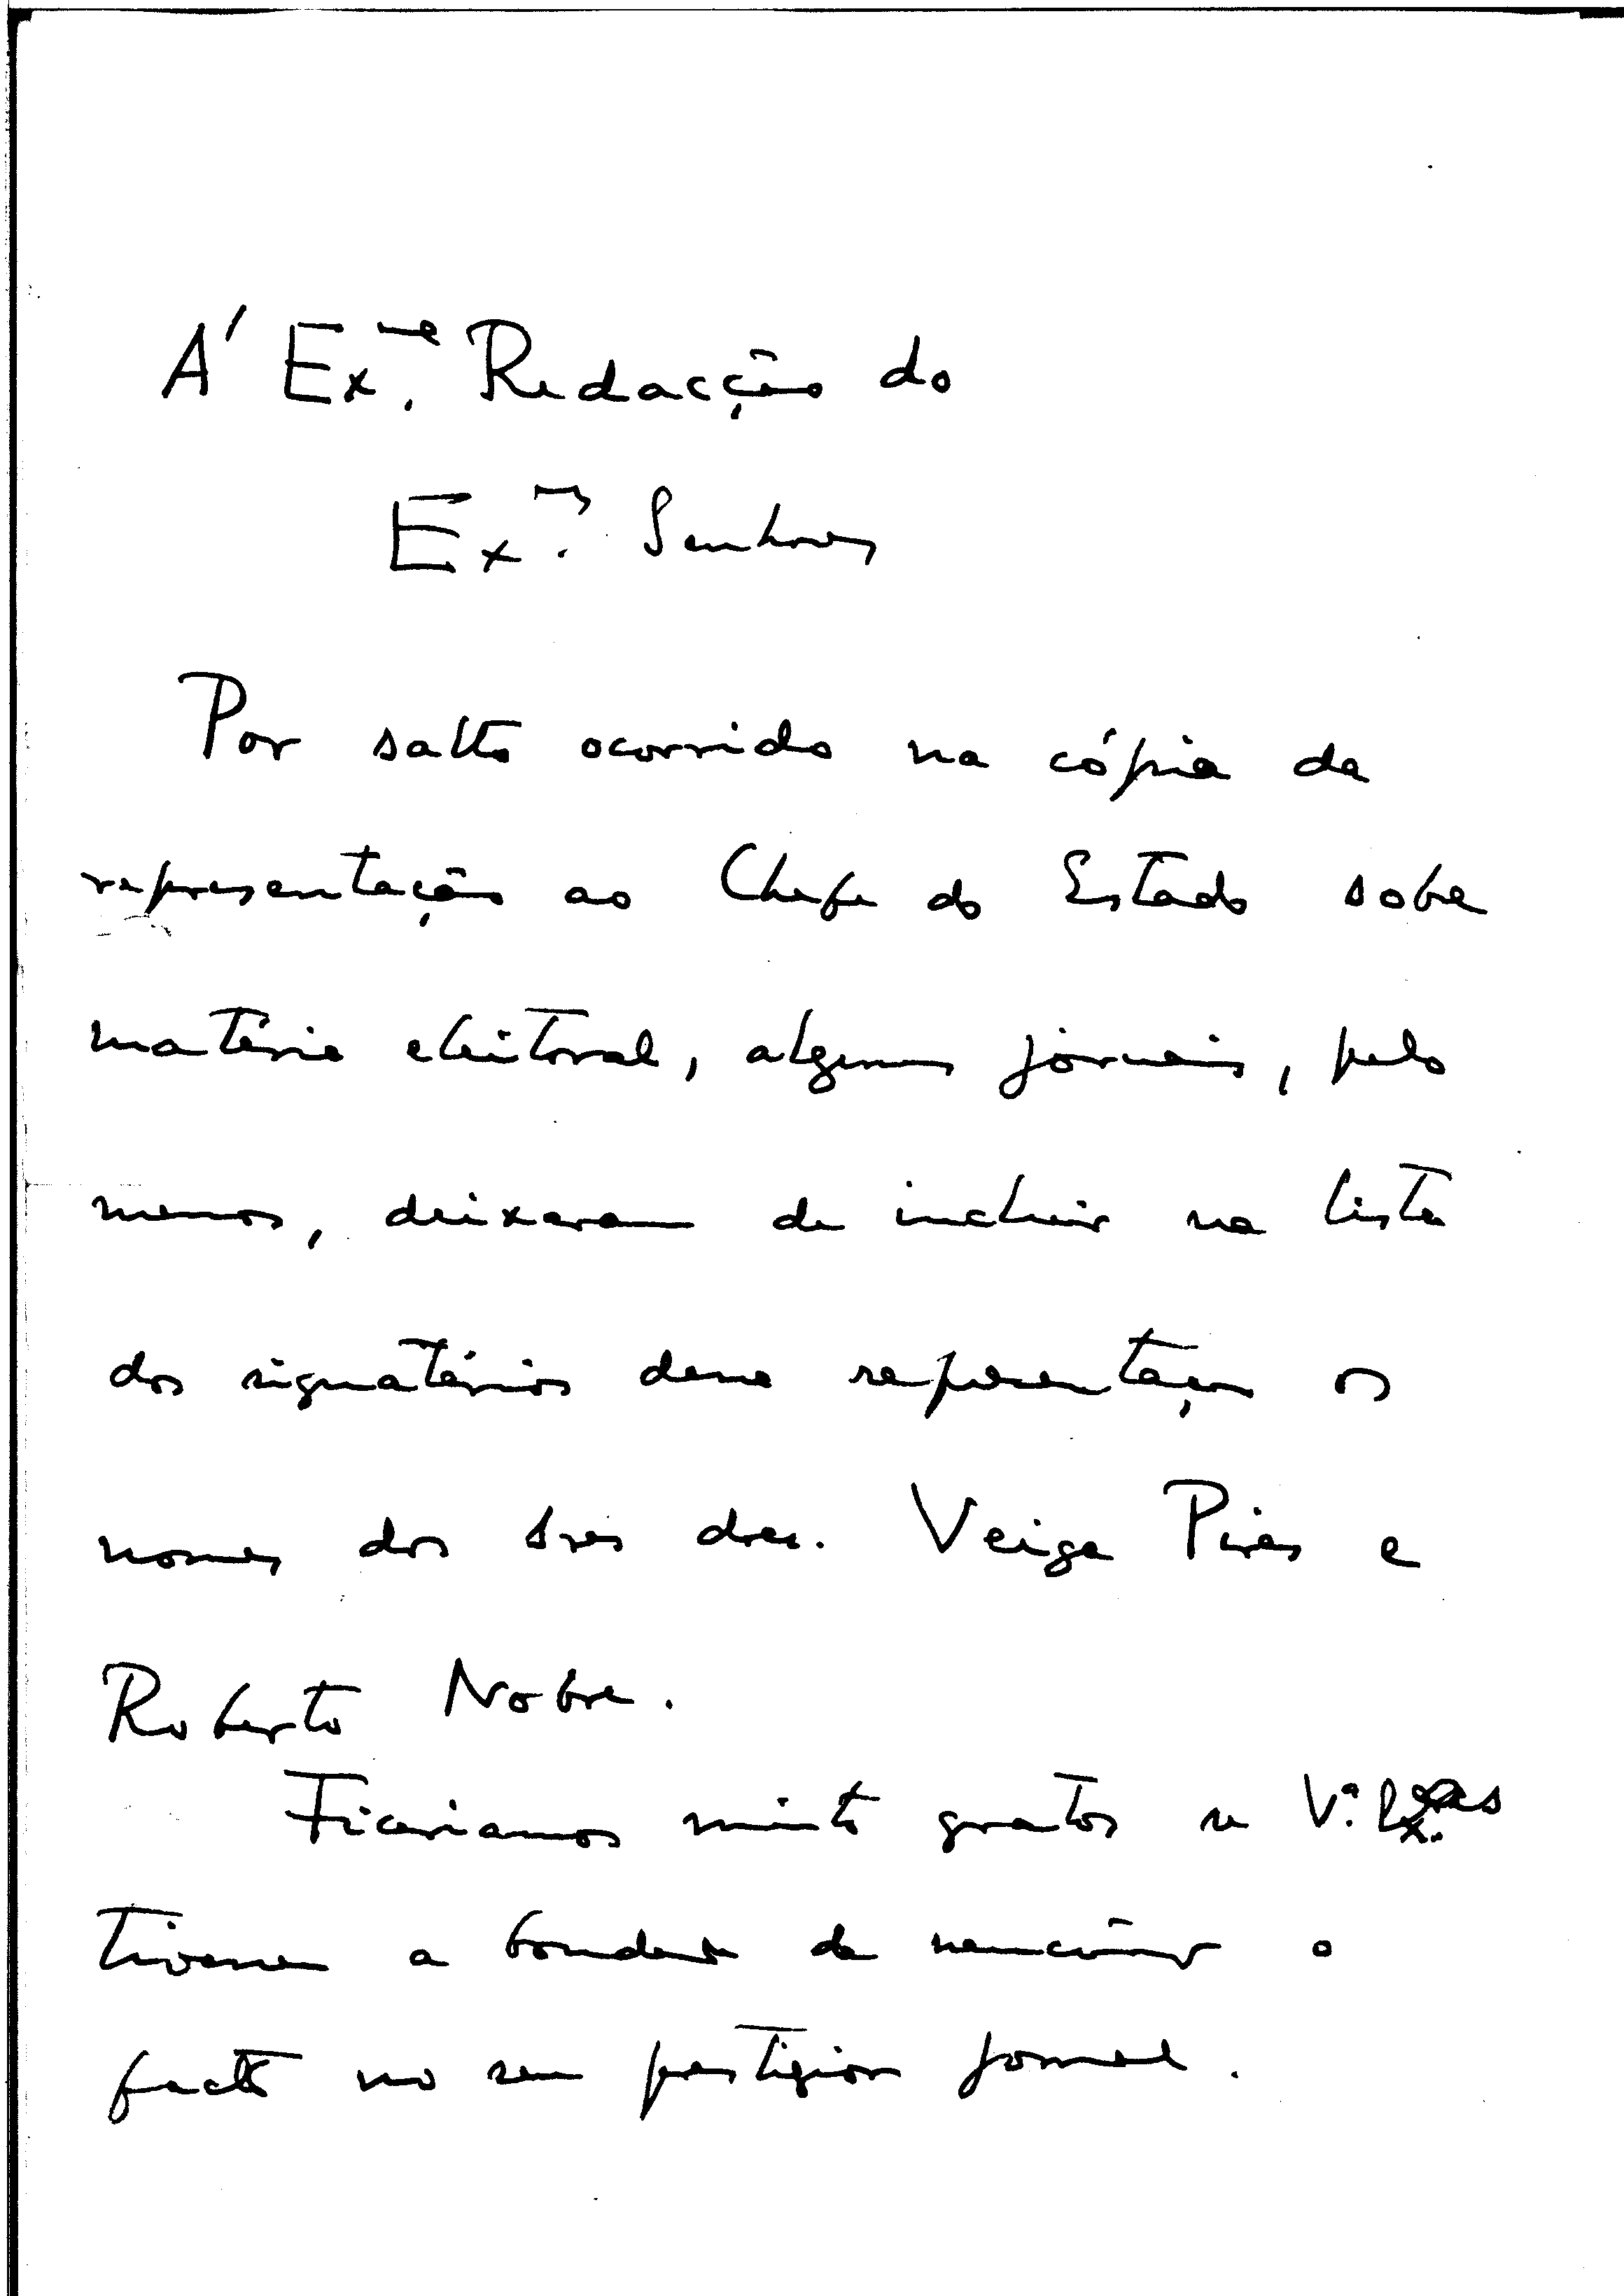 A' Ex.ma Redacção do
Ex.mos Senhores
Por salto ocorrido na cópia da
representação ao Chefe do Estado sobre
matéria eleitoral, alguns jornais, pelo
menos, deixaram de incluir na lista
dos signatários dessa representação os
nomes dos Sres dres. Veiga Pires e
Roberto Nobre.
Ficariamos muito gratos se V.ª Ex.as
tivessem a bondade de mencionar o
facto no seu prestigioso jornal.